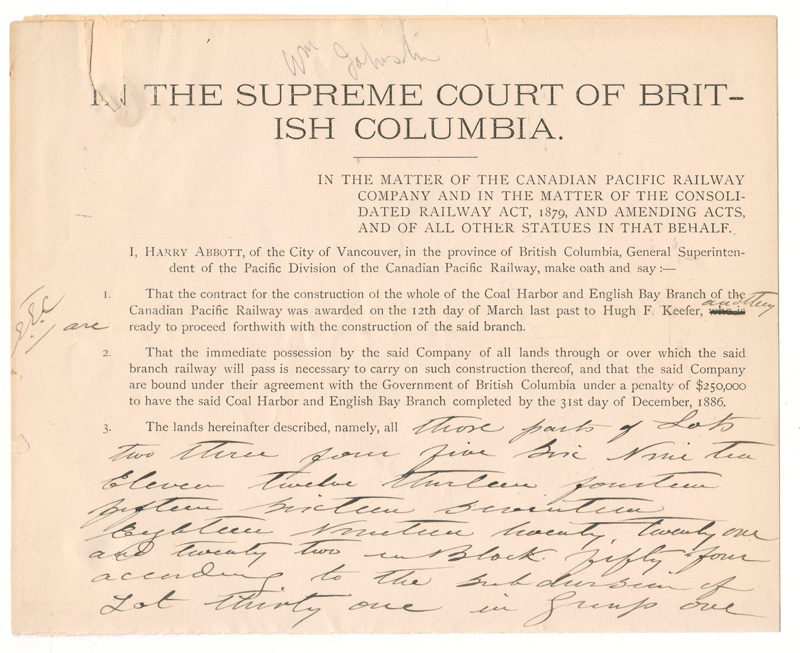 Wm Johnston
IN THE SUPREME COURT OF BRIT-
ISH COLUMBIA.
IN THE MATTER OF THE CANADIAN PACIFIC RAILWAY
COMPANY AND IN THE MATTER OF THE CONSOLI-
DATED RAILWAY ACT, 1879, AND AMENDING ACTS,
AND OF ALL OTHER STATUES IN THAT BEHALF.
I, HARRY ABBOTT, of the City of Vancouver, in the province of British Columbia, General Superinten-
dent of the Pacific Division of the Canadian Pacific Railway, make oath and say :—
1. That the contract for the construction of the whole of the Coal Harbor and English Bay Branch of the
and they
Canadian Pacific Railway was awarded on the 12th day of March last past to Hugh F. Keefer, who is
are ready to proceed forthwith with the construction of the said branch.
2. That the immediate possession by the said Company of all lands through or over which the said
branch railway will pass is necessary to carry on such construction thereof, and that the said Company
are bound under their agreement with the Government of British Columbia under a penalty of $250,000
to have the said Coal Harbor and English Bay Branch completed by the 31st day of December, 1886.
3. The lands hereinafter described, namely, all those parts of Lots
two three four five six Nine ten
Eleven twelve thirteen fourteen
fifteen sixteen seventeen
Eighteen Nineteen twenty, twenty one
and twenty two in Block fifty four
according to the subdivision of
Lot thirty one in Group one